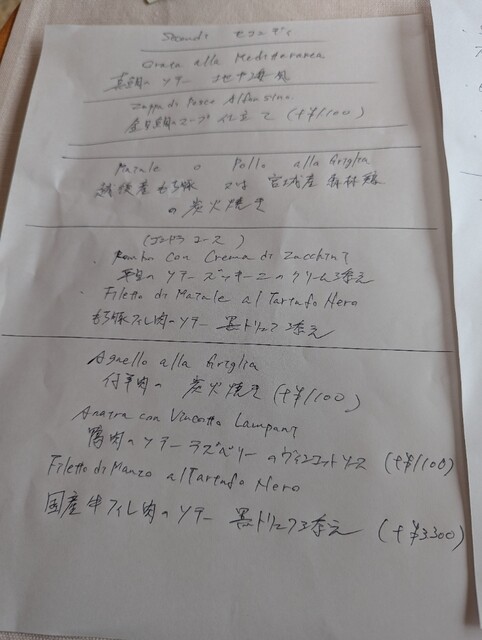 Secondi セコンディ
Orata alla Mediterranea
真鯛のソテー 地中海風
Zuppa di Pesce Alfonsino
金目鯛のスープ仕立て (+¥1100)
Maiale o Pollo alla Griglia
越後産もち豚 又は 宮城産森林鶏
の炭火焼き
コース)
Rombo con Crema di Zucchini
平目のソテー ズッキーニのクリーム添え
Filetto di Maiale al Tartufo Nero
もち豚フィレ肉のソテー 黒トリュフ添え
Agnello alla Griglia
仔羊肉の炭火焼き (+¥1100)
Anatra con Vincotto Lamponi
鴨肉のソテー ラズベリーのヴィンコットソース (+¥1100)
Filetto di Manzo al Tartufo Nero
国産牛フィレ肉のソテー 黒トリュフ添え (+¥3300)